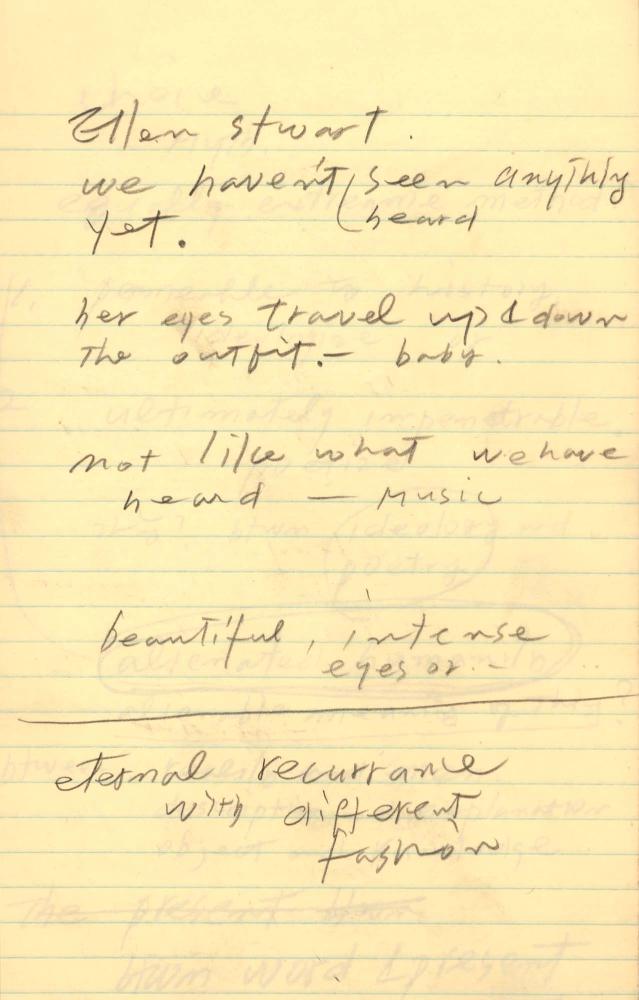 Ellen Stwart.
we haven't (seen anything
(heard
yet.
her eyes travel up & down
the outfit. — baby.
not like what we have
heard — Music
beautiful, intense
eyes or -
eternal recurrance
with different
fashion